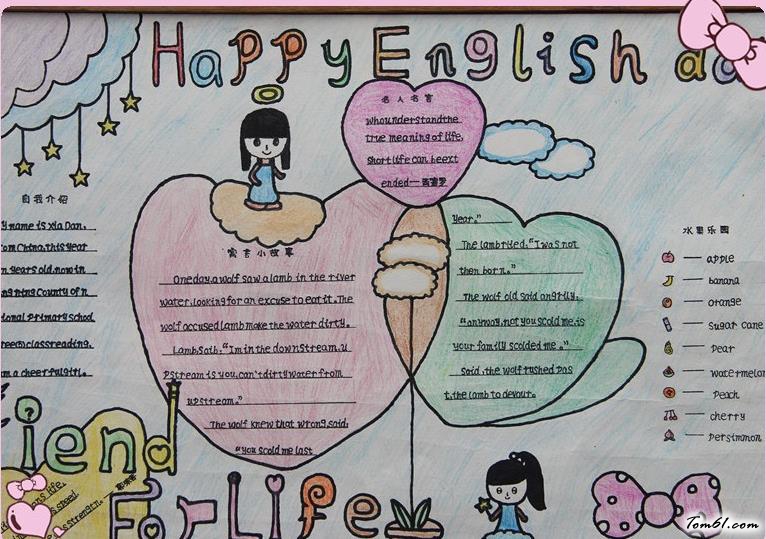 Happy English
名人名言
Who understand the
true meaning of life,
short life can be ext
ended——西塞罗
自我介绍
y name is Xia Dan.
om China, this year
n years old, now in
County of n
ional Primary school
class reading,
m a cheerful girl.
寓言小故事
One day, a wolf saw a lamb in the river
water, looking for an excuse to eat it. The
wolf accused lamb make the water dirty.
Lamb Saih: "Im in the down stream, u
pstream is you, can't dirty water from
upstream."
The wolf knew that wrong, said:
"you scold me last
year."
The lamb tried: "I was not
then born."
The wolf old said angrily.
"anyway, not you scold me, is
your family scolded me."
Said, the wolf rushed pas
t, the lamb to devour.
水果乐园
apple
banana
orange
sugar cane
pear
watermelon
peach
cherry
persimmon
iend
For Life
ans life,
speed,
s strength.
Tom61.com